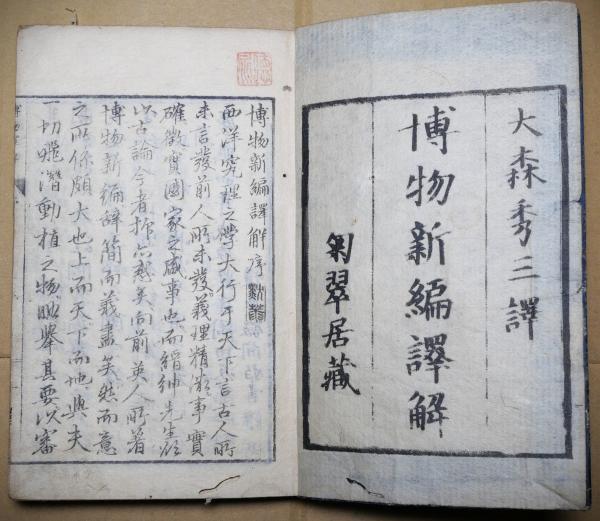 大森秀三譯
博物新編譯解
翠居藏
博物新編譯解序
西洋究理之學大行于天下言古人所
未言發前人所未發義理精微事實
確徵實國家之盛事也而縉紳先生
以古論今者抑亦惑矣向前英人所著
博物新編辭簡而義盡矣然而意
之所係頗大也上而天下而地與夫
一切潛動植之物舉其要以審